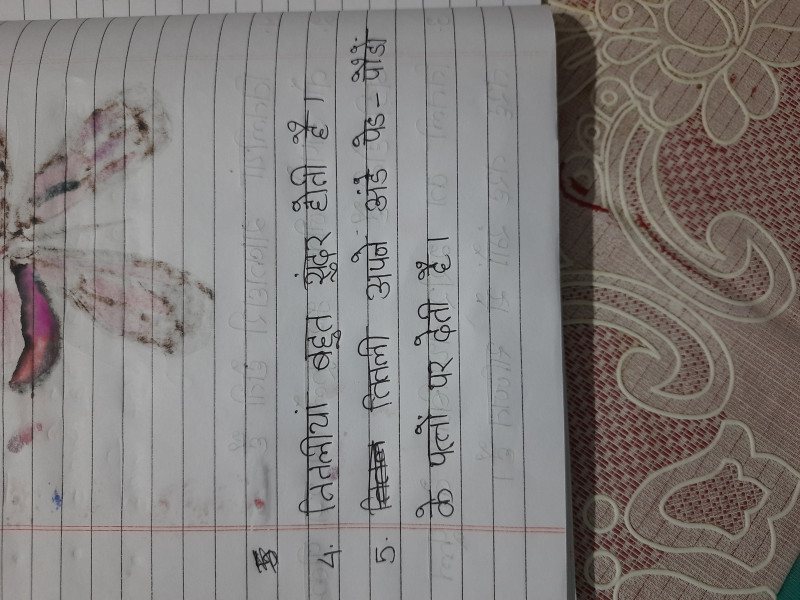 4. तितलीयां बहुत सुंदर होती है।
5. तितली अपने अंडे पेड़-पौंडों
के पत्तों पर देती है।